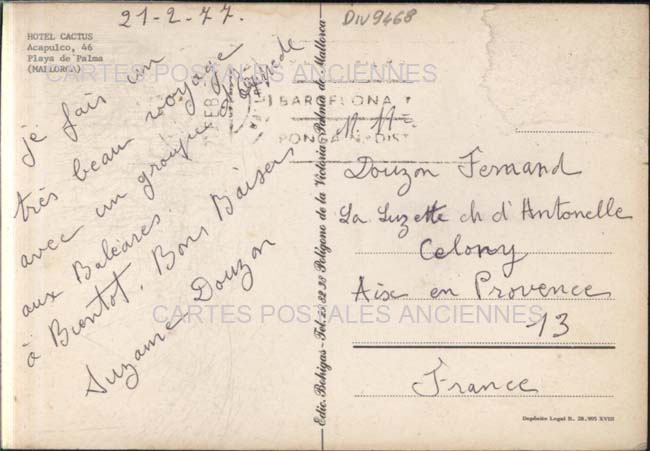 21-2-77.
DIV9468
HOTEL CACTUS
Acapulco, 46
Playa de Palma
(MALLORCA)
CARTES POSTALES ANCIENNES
je fais un
très beau voyage
avec un groupe
aux Baléares
à Bientot. Bons Baisers
Suzanne Douzon
BARCELONA
Edic. Bohigas - Tel. Polígono de la Victoria Palma de Mallorca
M. M
Douzon Fernand
La Luzette ch d'Antonelle
Celony
Aix en Provence
13
France
CARTES POSTALES ANCIENNES
Depósito Legal B. 28.995 XVIII